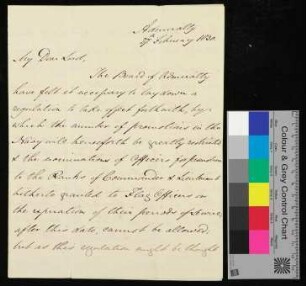 Admiralty
27th February 1830
My Dear Lord,
The Board of Admiralty
have felt it necessary to lay down a
regulation to take effect forthwith, by
which the number of promotions in the
Navy will henceforth be greatly restricted
& the nominations of Officers for promotion
to the Ranks of Commander & Lieutenant
hitherto granted to Flag Officers on
the expiration of their periods of Service
after this date, cannot be allowed;
but as this regulation might be thought
Colour & Grey Control Chart